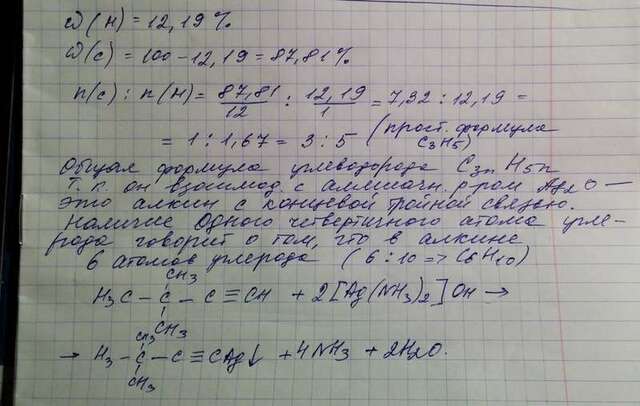 ω(H) = 12,19%
ω(C) = 100 - 12,19 = 87,81%
n(C) : n(H) = 87,81/12 : 12,19/1 = 7,32 : 12,19 =
= 1 : 1,67 = 3 : 5 (прост. формула C3H5)
Общая формула углеводорода C3nH5n
Т.к. он взаимод. с аммиачн. р-ром Ag2O —
это алкин с концевой тройной связью.
Наличие одного четвертичного атома угле-
рода говорит о том, что в алкине
6 атомов углерода (6 : 10 => C6H10)
CH3
H3C - C - C ≡ CH + 2[Ag(NH3)2]OH →
CH3
CH3
→ H3 - C - C ≡ CAg↓ + 4NH3 + 2H2O.
CH3